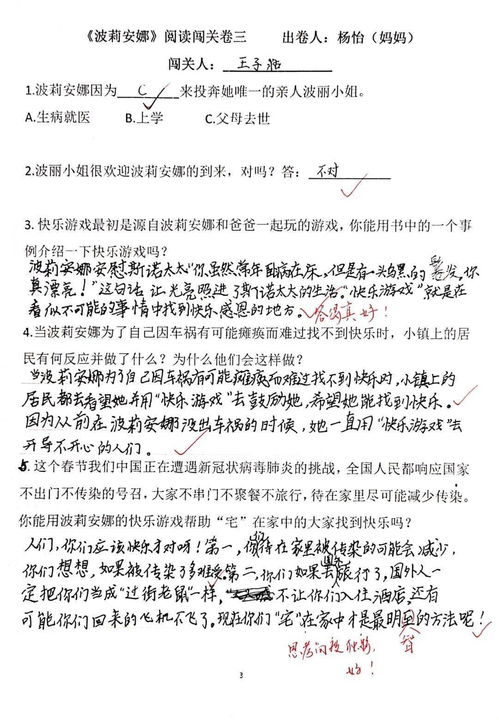 《波莉安娜》阅读闯关卷三 出卷人：杨怡（妈妈）
闯关人：王子
1.波莉安娜因为 C 来投奔她唯一的亲人波丽小姐。
A.生病就医 B.上学 C.父母去世
2.波丽小姐很欢迎波莉安娜的到来，对吗？答：不对
3.快乐游戏最初是源自波莉安娜和爸爸一起玩的游戏，你能用书中的一个事
例介绍一下快乐游戏吗？
波莉安娜安慰斯诺太太“你虽然常年卧病在床，但是有一头乌黑的卷发，你
真漂亮！”这句话让光亮照进了斯诺太太的生活。“快乐游戏”就是在
看似不可能的事情中找到快乐感恩的地方。
答得真好！
4.当波莉安娜为了自己因车祸有可能瘫痪而难过找不到快乐时，小镇上的居
民有何反应并做了什么？为什么他们会这样做？
当波莉安娜为了自己因车祸有可能瘫痪而难过找不到快乐时，小镇上的
居民都去看望她并用“快乐游戏”去鼓励她，希望她能找到快乐。
因为从前在波莉安娜没出车祸的时候，她一直用“快乐游戏”去
开导不开心的人们。
5.这个春节我们中国正在遭遇新冠状病毒肺炎的挑战，全国人民都响应国家
不出门不传染的号召，大家不串门不聚餐不旅行，待在家里尽可能减少传染。
你能用波莉安娜的快乐游戏帮助“宅”在家中的大家找到快乐吗？
人们，你们应该快乐才对呀！第一，你待在家里被传染的可能会减少，
你们想想，如果被传染了多难受。第二，你们如果去旅行了，国外人一
定把你们当成“过街老鼠”一样，不让你们入住酒店还有
可能你们回来的飞机不飞了。现在你们“宅”在家中才是最明的方法呢！
智
思考角度独特，
好！
3